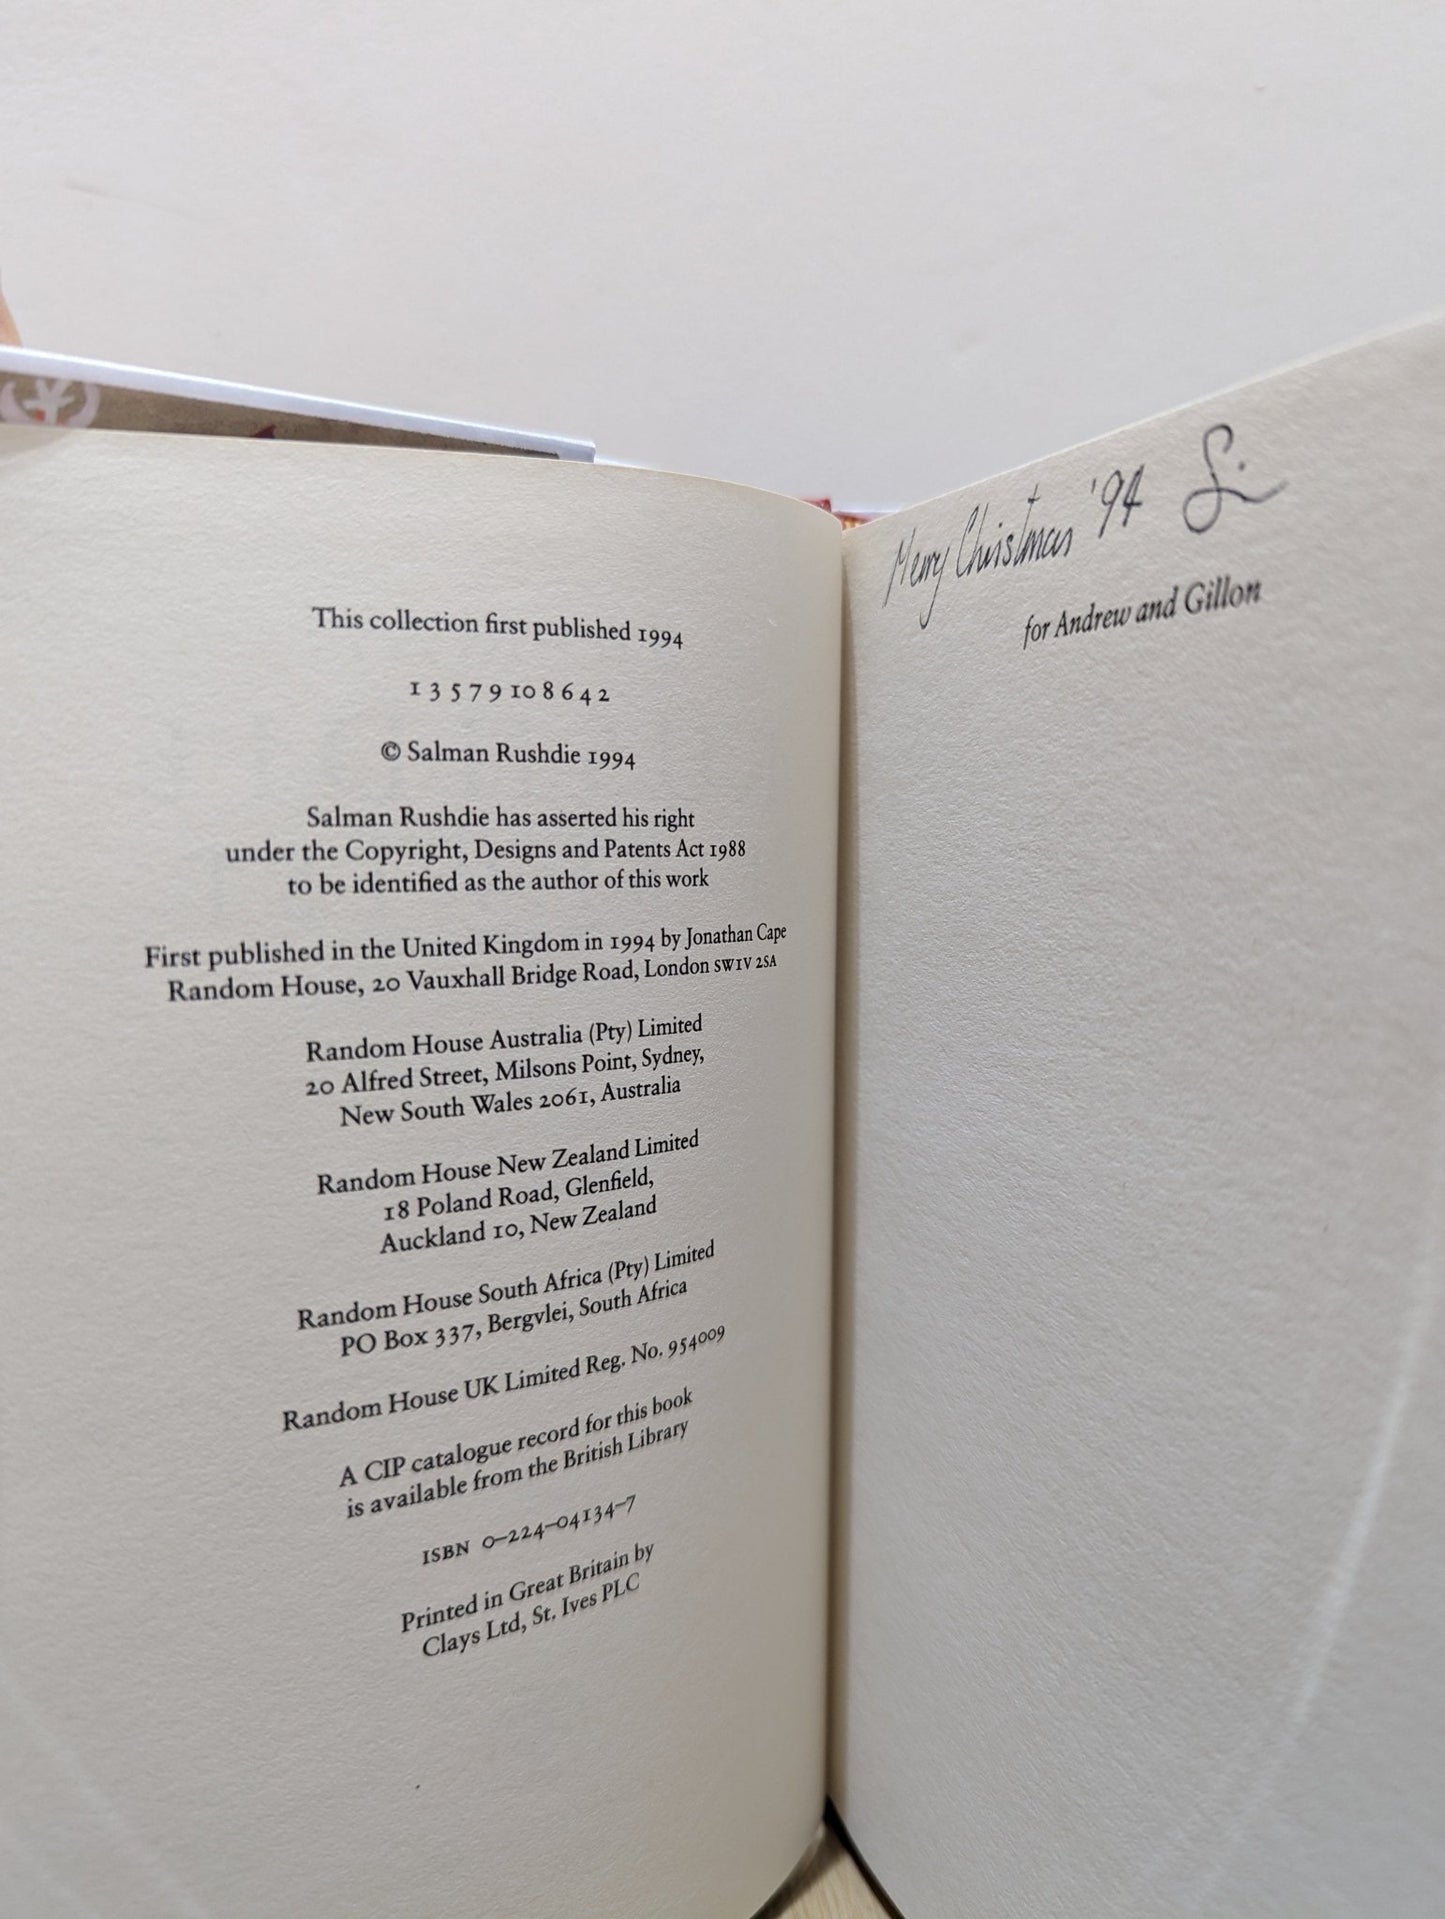 This collection first published 1994
1 3 5 7 9 10 8 6 4 2
© Salman Rushdie 1994
Salman Rushdie has asserted his right
under the Copyright, Designs and Patents Act 1988
to be identified as the author of this work
First published in the United Kingdom in 1994 by Jonathan Cape
Random House, 20 Vauxhall Bridge Road, London SW1V 2SA
Random House Australia (Pty) Limited
20 Alfred Street, Milsons Point, Sydney,
New South Wales 2061, Australia
Random House New Zealand Limited
18 Poland Road, Glenfield,
Auckland 10, New Zealand
Random House South Africa (Pty) Limited
PO Box 337, Bergvlei, South Africa
Random House UK Limited Reg. No. 954009
A CIP catalogue record for this book
is available from the British Library
ISBN 0–224–04134–7
Printed in Great Britain by
Clays Ltd, St. Ives PLC
Merry Christmas '94
for Andrew and Gillon